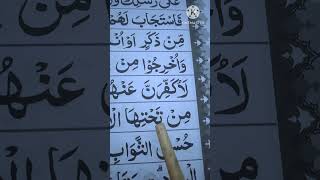 عَلٰى رُسُلِكَ وَ
فَاسْتَجَابَ لَهُمْ
مِّنْ ذَكَرٍ اَوْ اُنْ
وَاُخْرِجُوْا مِنْ
لَاُكَفِّرَنَّ عَنْهُ
مِنْ تَحْتِهَا الْ
حُسْنُ الثَّوَابِ